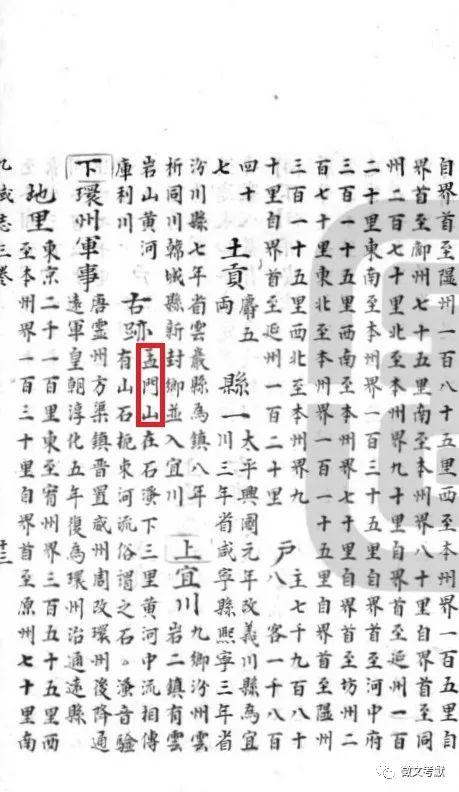 自界首至隰州一百八十五里西至本州界一百五里自
界首至鄜州七十五里南至本州界八十里自界首至同
州二百七十里北至本州界九十里自界首至延州一百
二十里東南至本州界一百三十五里自界首至河中府
三百一十五里西南至本州界七十里自界首至坊州二
百七十里東北至本州界一百一十五里自界首至隰州
三百一十五里西北至本州界九
十里自界首至延州一百二十里
戶
主七千九百八十
八 客一千八百
四十
七
土貢
麝五
兩
縣一
太平興國元年改義川縣為宜
川三年省咸寧縣熙寧三年省
汾川縣七年省雲巖縣為鎮八年
析同川韓城縣新封鄉並入宜川
上宜川
九鄉汾州雲
岩二鎮有雲
岩山黃河
庫利川
古跡
孟門山在石下三里黃河中流相傳
有山石扼束河流俗謂之石。音驗
下環州軍事
唐靈州方渠鎮晉置威州周改環州後降通
遠軍皇朝淳化五年復為環州治通遠縣
地里
東京二千一百里東至寧州界三百五十五里西
至本州界一百三十里自界首至原州七十里南
九域志三卷
十三
徵文考獻